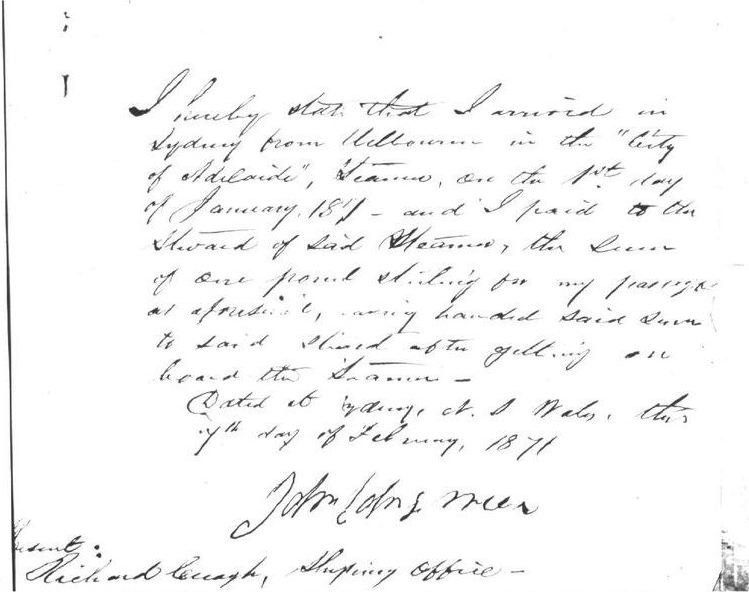 I hereby state that I arrived in
Sydney from Melbourne in the "City
of Adelaide", Steamer, on the 1st day
of January, 1871 - and I paid to the
Steward of said Steamer, the sum
of one pound sterling for my passage
as aforesaid, having handed said sum
to said Steward after getting on
board the Steamer -
Dated at Sydney, N. S Wales, this
7th day of February, 1871
John
Present:
Richard Creagh, Shipping Office -